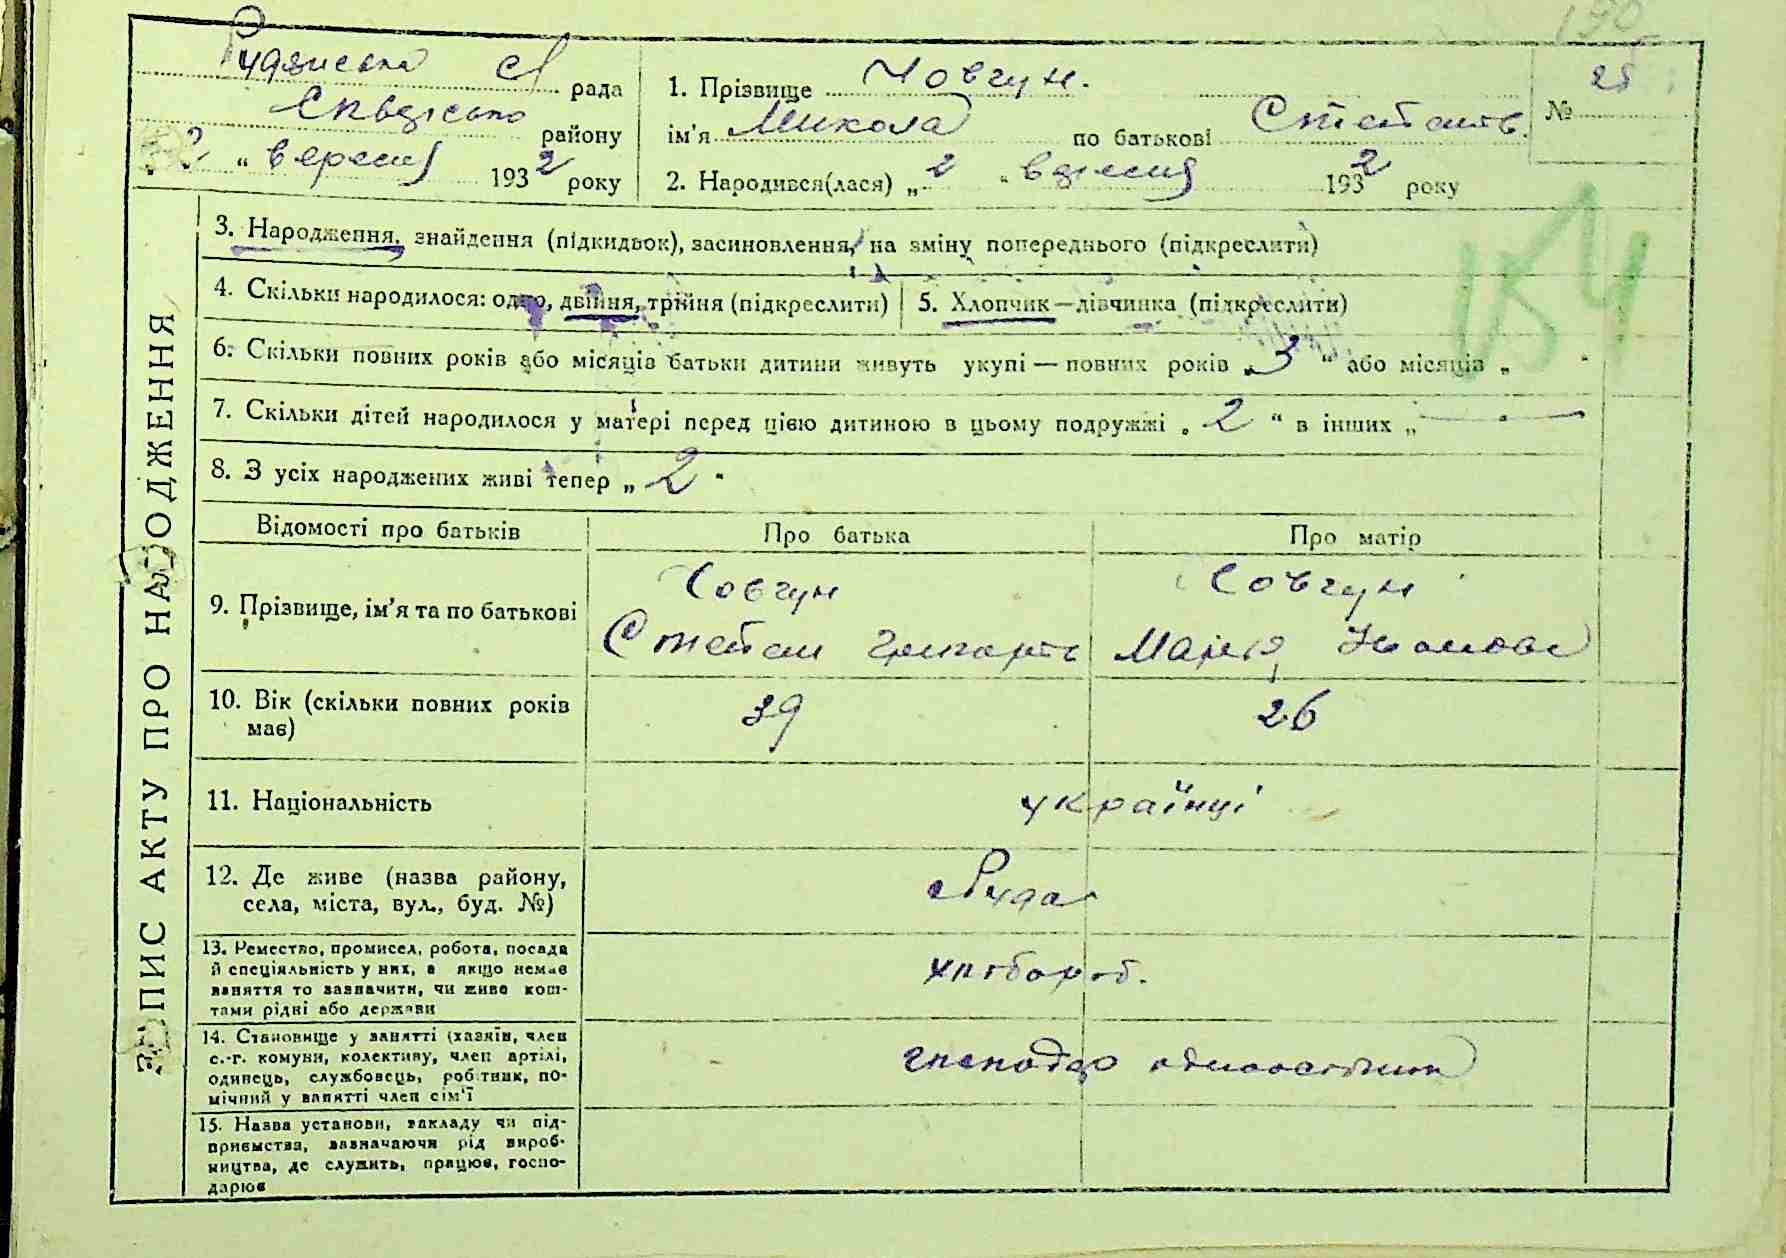 190
Рудянська с/ рада
Сквирсько району
2 " вересня 1932 року
1. Прізвище Човгун.
ім'я Микола по батькові Степанов.
2. Народився(лася) „ 2 " вересня 1932 року
№ 25
154
ЗАПИС АКТУ ПРО НАРОДЖЕННЯ
3. Народження, знайдення (підкидьок), засиновлення, на зміну попереднього (підкреслити)
4. Скільки народилося: одно, двійня, трійня (підкреслити) 5. Хлопчик — дівчинка (підкреслити)
6. Скільки повних років або місяців батьки дитини живуть укупі — повних років „ 3 " або місяців „
7. Скільки дітей народилося у матері перед цією дитиною в цьому подружжі „ 2 " в інших „ —
8. З усіх народжених живі тепер „ 2 "
Відомості про батьків Про батька Про матір
9. Прізвище, ім'я та по батькові
Човгун Човгун
Степан Григоров Марія Іванова
10. Вік (скільки повних років має) 39 26
11. Національність українці
12. Де живе (назва району, села, міста, вул., буд. №) с Руда
13. Ремество, промисел, робота, посада
й спеціяльність у них, а якщо немає
заняття то зазначити, чи живе кош-
тами рідні або держави
хлібороб.
14. Становище у занятті (хазяїн, член
с.-г. комуни, колективу, член артілі,
одинець, службовець, робітник, по-
мічний у занятті член сім'ї
господар одноосібник
15. Назва установи, закладу чи під-
приємства, зазначаючи рід вироб-
ництва, де служить, працює, госпо-
дарює